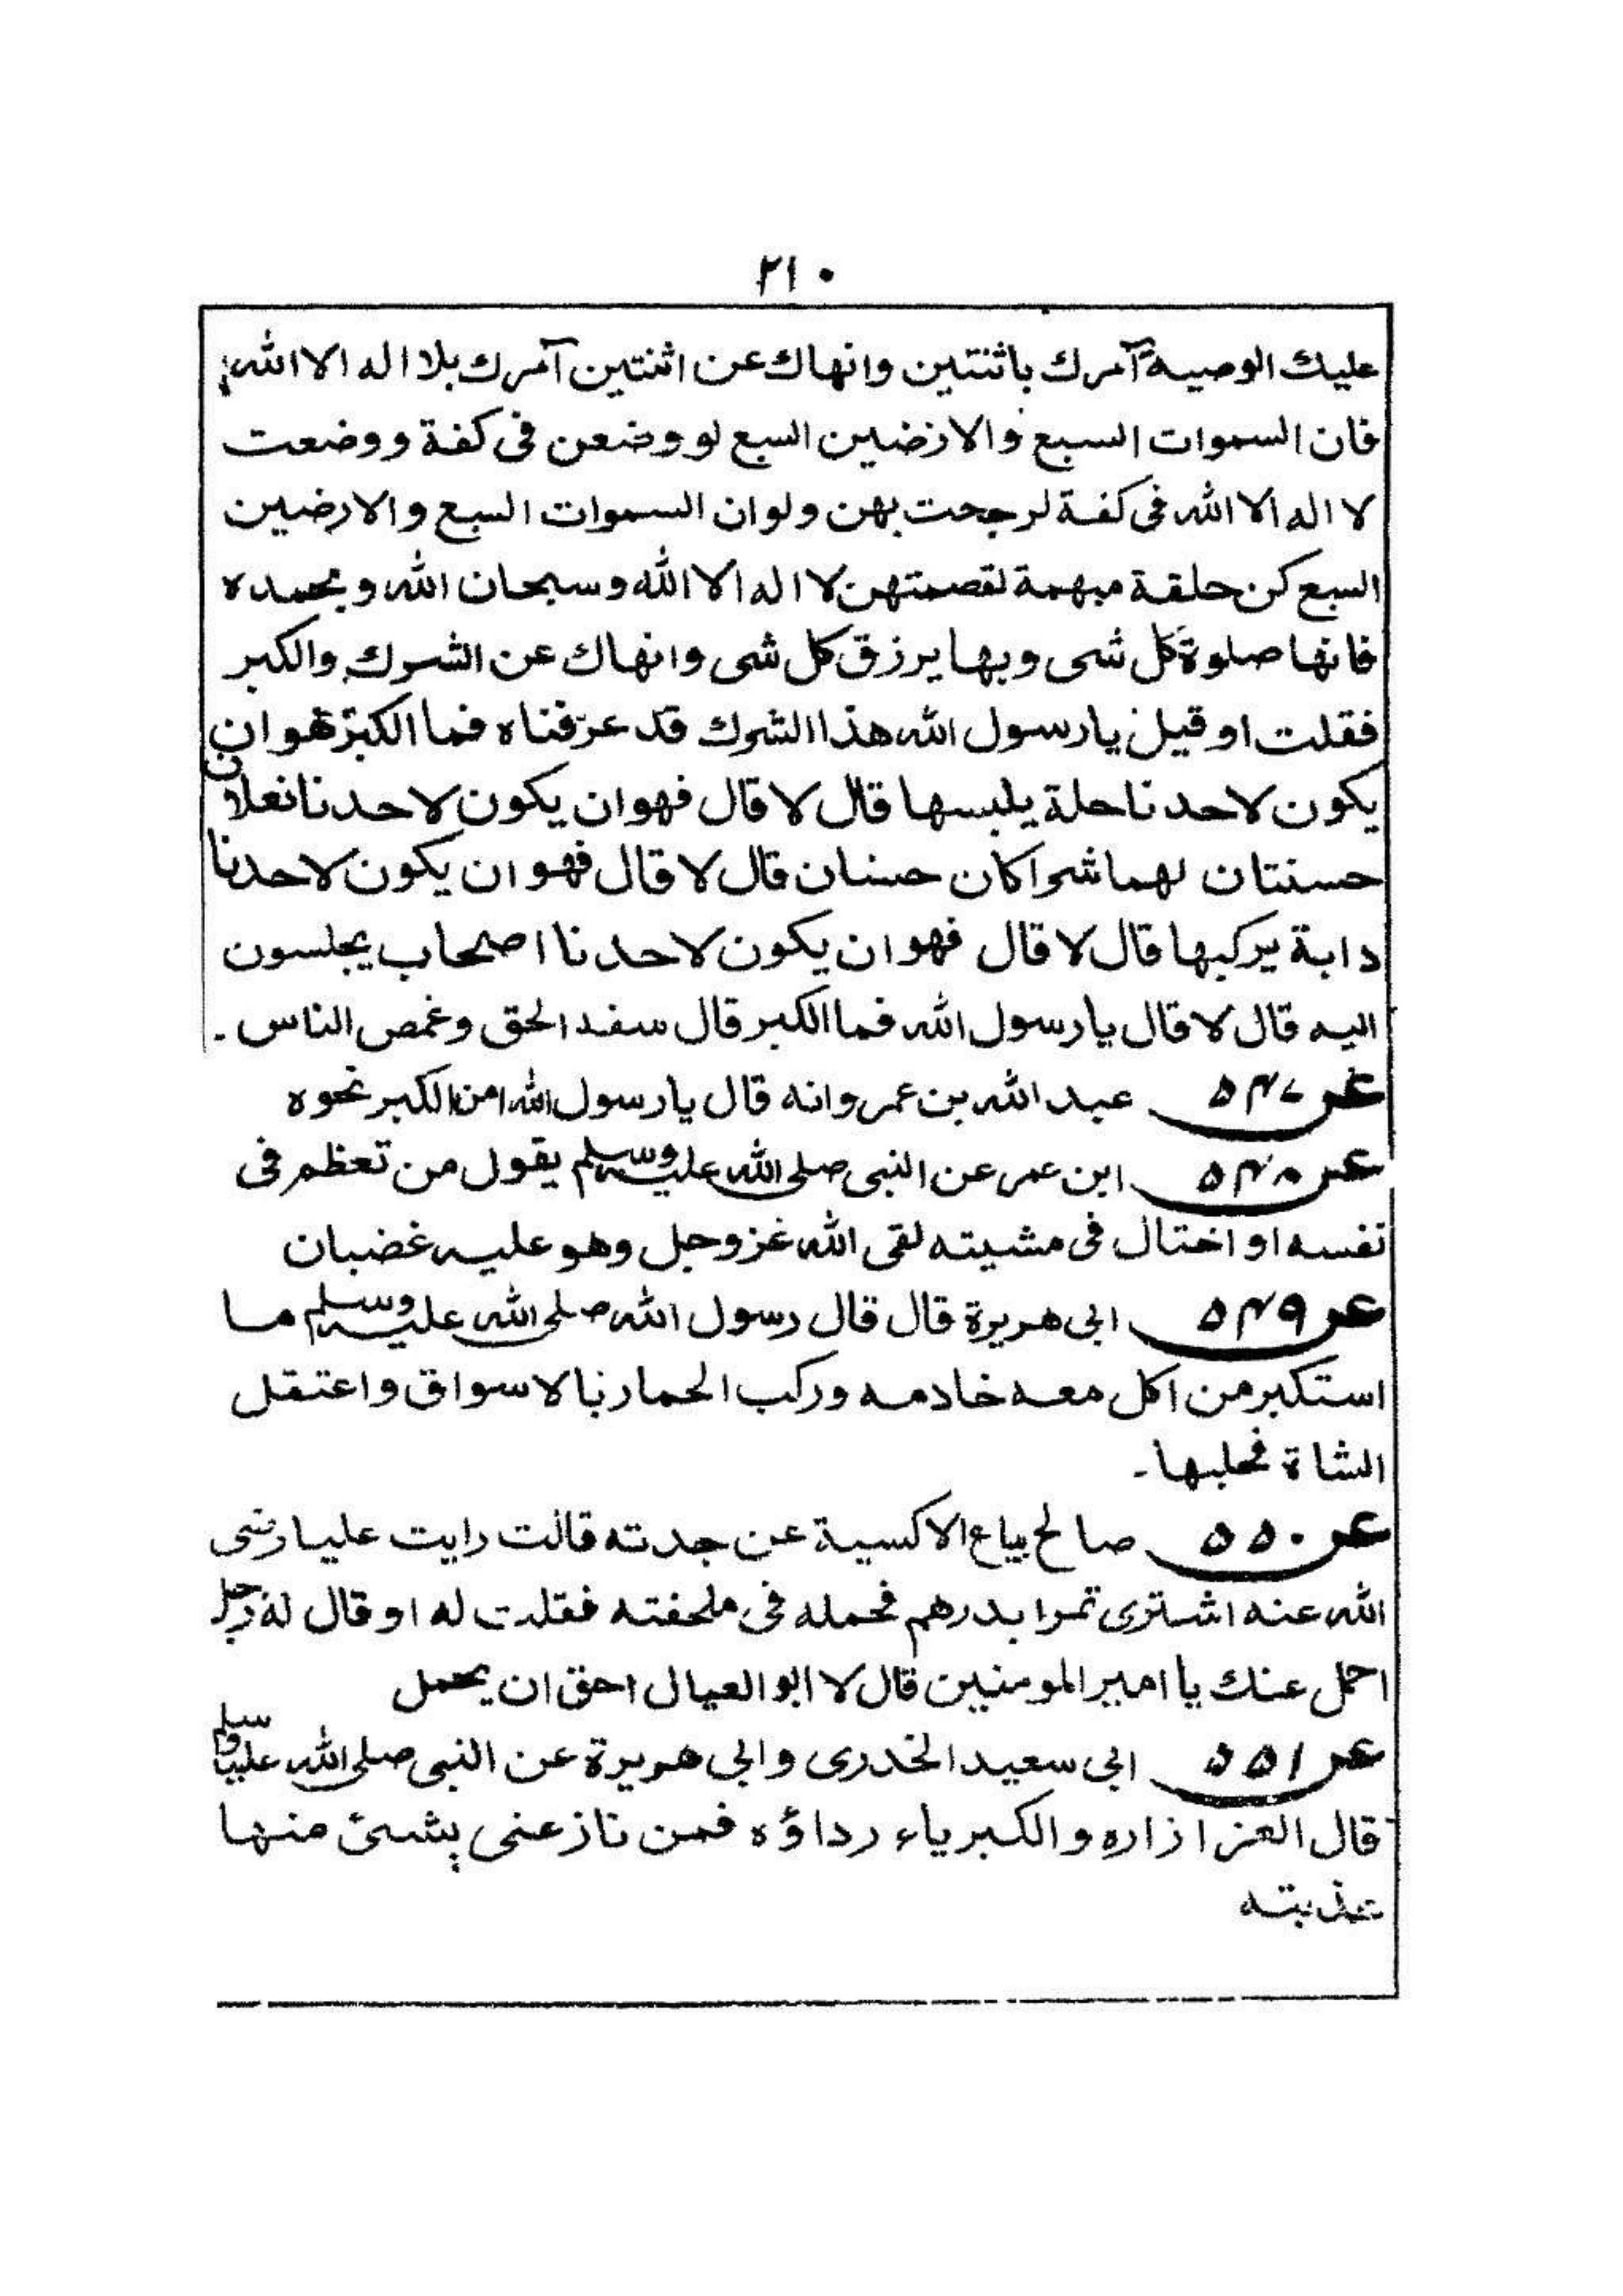 ۲۱۰
عليك الوصية آمرك باثنتين وانهاك عن اثنتين آمرك بلا اله الا الله
فان السموات السبع والارضين السبع لو وضعن فى كفة ووضعت
لا اله الا الله فى كفة لرجحت بهن ولو ان السموات السبع والارضين
السبع كن حلقة مبهمة لقصمتهن لا اله الا الله وسبحان الله وبحمده
فانها صلوة كل شى وبها يرزق كل شى وانهاك عن الشرك والكبر
فقلت او قيل يا رسول الله هذا الشرك قد عرّفناه فما الكبر هو ان
يكون لاحدنا حلة يلبسها قال لا قال فهو ان يكون لاحدنا نعلان
حسنتان لهما شراكان حسنان قال لا قال فهو ان يكون لاحدنا
دابة يركبها قال لا قال فهو ان يكون لاحدنا اصحاب يجلسون
اليه قال لا قال يا رسول الله فما الكبر قال سفه الحق وغمص الناس ۔
عن ۵۴۷ عبد الله بن عمرو انه قال يا رسول الله امن الكبر نحوه
عن ۵۴۸ ابن عمر عن النبى صلى الله عليه وسلم يقول من تعظم فى
نفسه او اختال فى مشيته لقى الله عز وجل وهو عليه غضبان
عن ۵۴۹ ابى هريرة قال قال رسول الله صلى الله عليه وسلم ما
استكبر من اكل معه خادمه وركب الحمار بالاسواق واعتقل
الشاة فحلبها ۔
عن ۵۵۰ صالح بياع الاكسية عن جدته قالت رايت عليا رضى
الله عنه اشترى تمرا بدرهم فحمله فى ملحفته فقلت له او قال له رجل
احمل عنك يا امير المومنين قال لا ابو العيال احق ان يحمل
عن ۵۵۱ ابى سعيد الخدرى وابى هريرة عن النبى صلى الله عليه وسلم
قال العز ازاره والكبرياء رداؤه فمن نازعنى بشىئ منها
عذبته